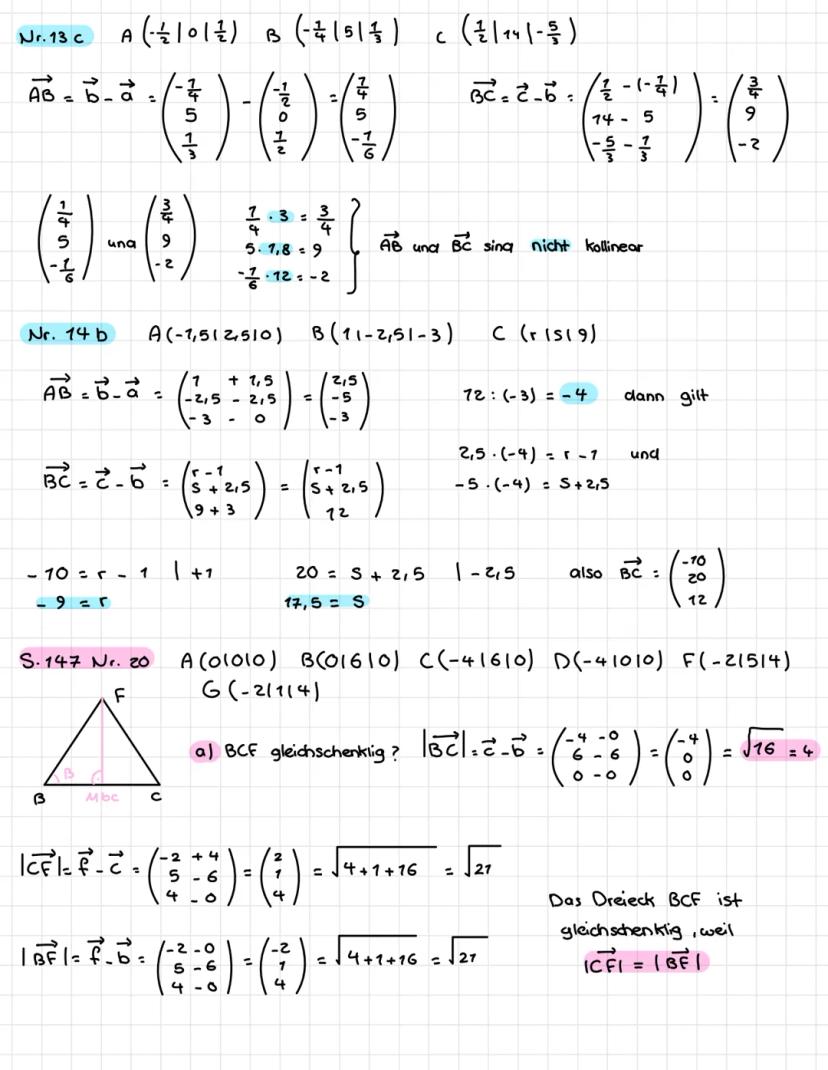 Nr. 13 c A (-1/2 | 0 | 1/2) B (-1/4 | 5 | 1/3) C (1/2 | 14 | -5/3)
AB = b - a = (-1/4 5 1/3) - (-1/2 0 1/2) = (1/4 5 -1/6) BC = c - b = (1/2 - (-1/4) 14 - 5 -5/3 - 1/3) = (3/4 9 -2)
(1/4 5 -1/6) und (3/4 9 -2)
1/4 · 3 = 3/4
5 · 1,8 = 9
-1/6 · 12 = -2
AB und BC sind nicht kollinear
Nr. 14 b A(-1,5|2,5|0) B(1|-2,5|-3) C (r|s|9)
AB = b - a = (1 + 1,5 -2,5 - 2,5 -3 - 0) = (2,5 -5 -3) 12 : (-3) = -4 dann gilt
2,5 · (-4) = r - 1 und
-5 · (-4) = s + 2,5
BC = c - b = (r - 1 s + 2,5 9 + 3) = (r - 1 s + 2,5 12)
-10 = r - 1 | +1 20 = s + 2,5 | -2,5 also BC = (-10 20 12)
-9 = r 17,5 = s
S. 147 Nr. 20 A(0|0|0) B(0|6|0) C(-4|6|0) D(-4|0|0) F(-2|5|4)
G(-2|1|4)
F
B
β
Mbc
C
a) BCF gleichschenklig? |BC| = c - b = (-4 - 0 6 - 6 0 - 0) = (-4 0 0) = √16 = 4
|CF| = f - c = (-2 + 4 5 - 6 4 - 0) = (2 1 4) = √4+1+16 = √21
|BF| = f - b = (-2 - 0 5 - 6 4 - 0) = (-2 1 4) = √4+1+16 = √21
Das Dreieck BCF ist
gleichschenklig, weil
|CF| = |BF|